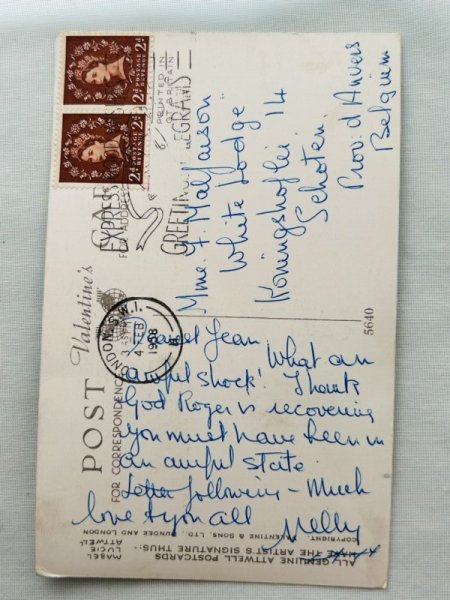 POST
Valentine's
CARD
FOR CORRESPONDENCE
FOR ADDRESS
2d POSTAGE REVENUE 2d
2d POSTAGE REVENUE 2d
GREETINGS
TELEGRAMS
EXPRESS
LONDON S.W.1.
4 FEB
1958
Jean
What an
awful shock! Thank
God Roger is recovering
you must have been in
an awful state.
Letter following - Much
love to you all
Nelly
Mme. F. Malfaison
White Lodge
Koningshoflei 14
Schoten
Prov. d'Anvers
Belgium
PRINTED IN
GT BRITAIN
5640
ALL GENUINE ATTWELL POSTCARDS
HAVE THE ARTIST'S SIGNATURE THUS:-
MABEL
LUCIE
ATTWELL
COPYRIGHT. VALENTINE & SONS, LTD., DUNDEE AND LONDON